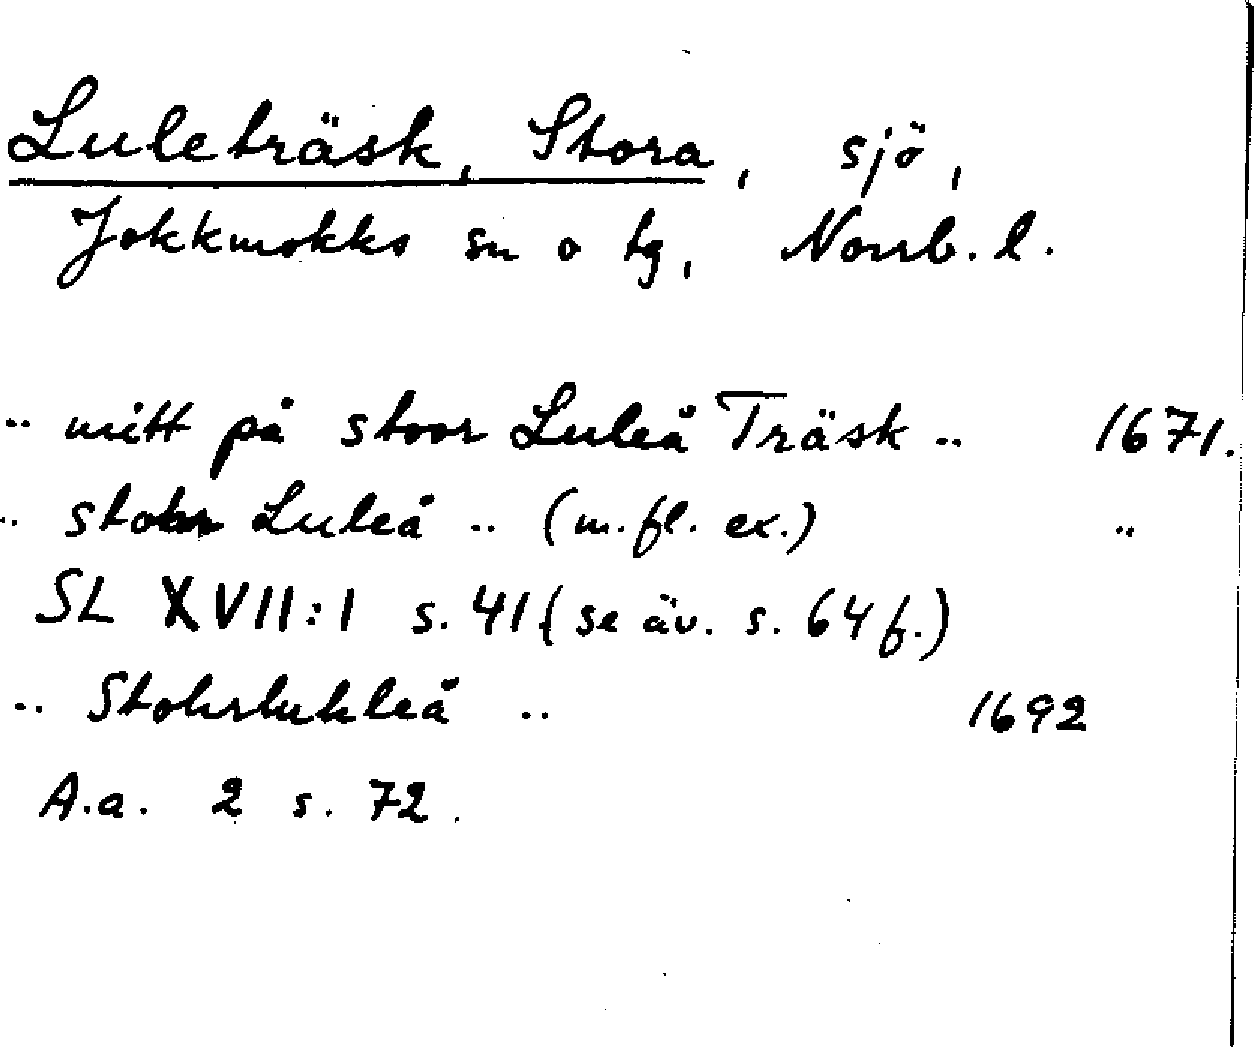 Luleträsk, Stora, sjö,
Jokkmokks sn o tg, Norrb. l.
.. mitt på stoor Luleå Träsk .. 1671.
.. stohr Luleå .. (m. fl. ex.) "
SL XVII:1 s. 41 (se äv. s. 64 f.)
.. Stohrluhleå .. 1692
A.a. 2 s. 72.